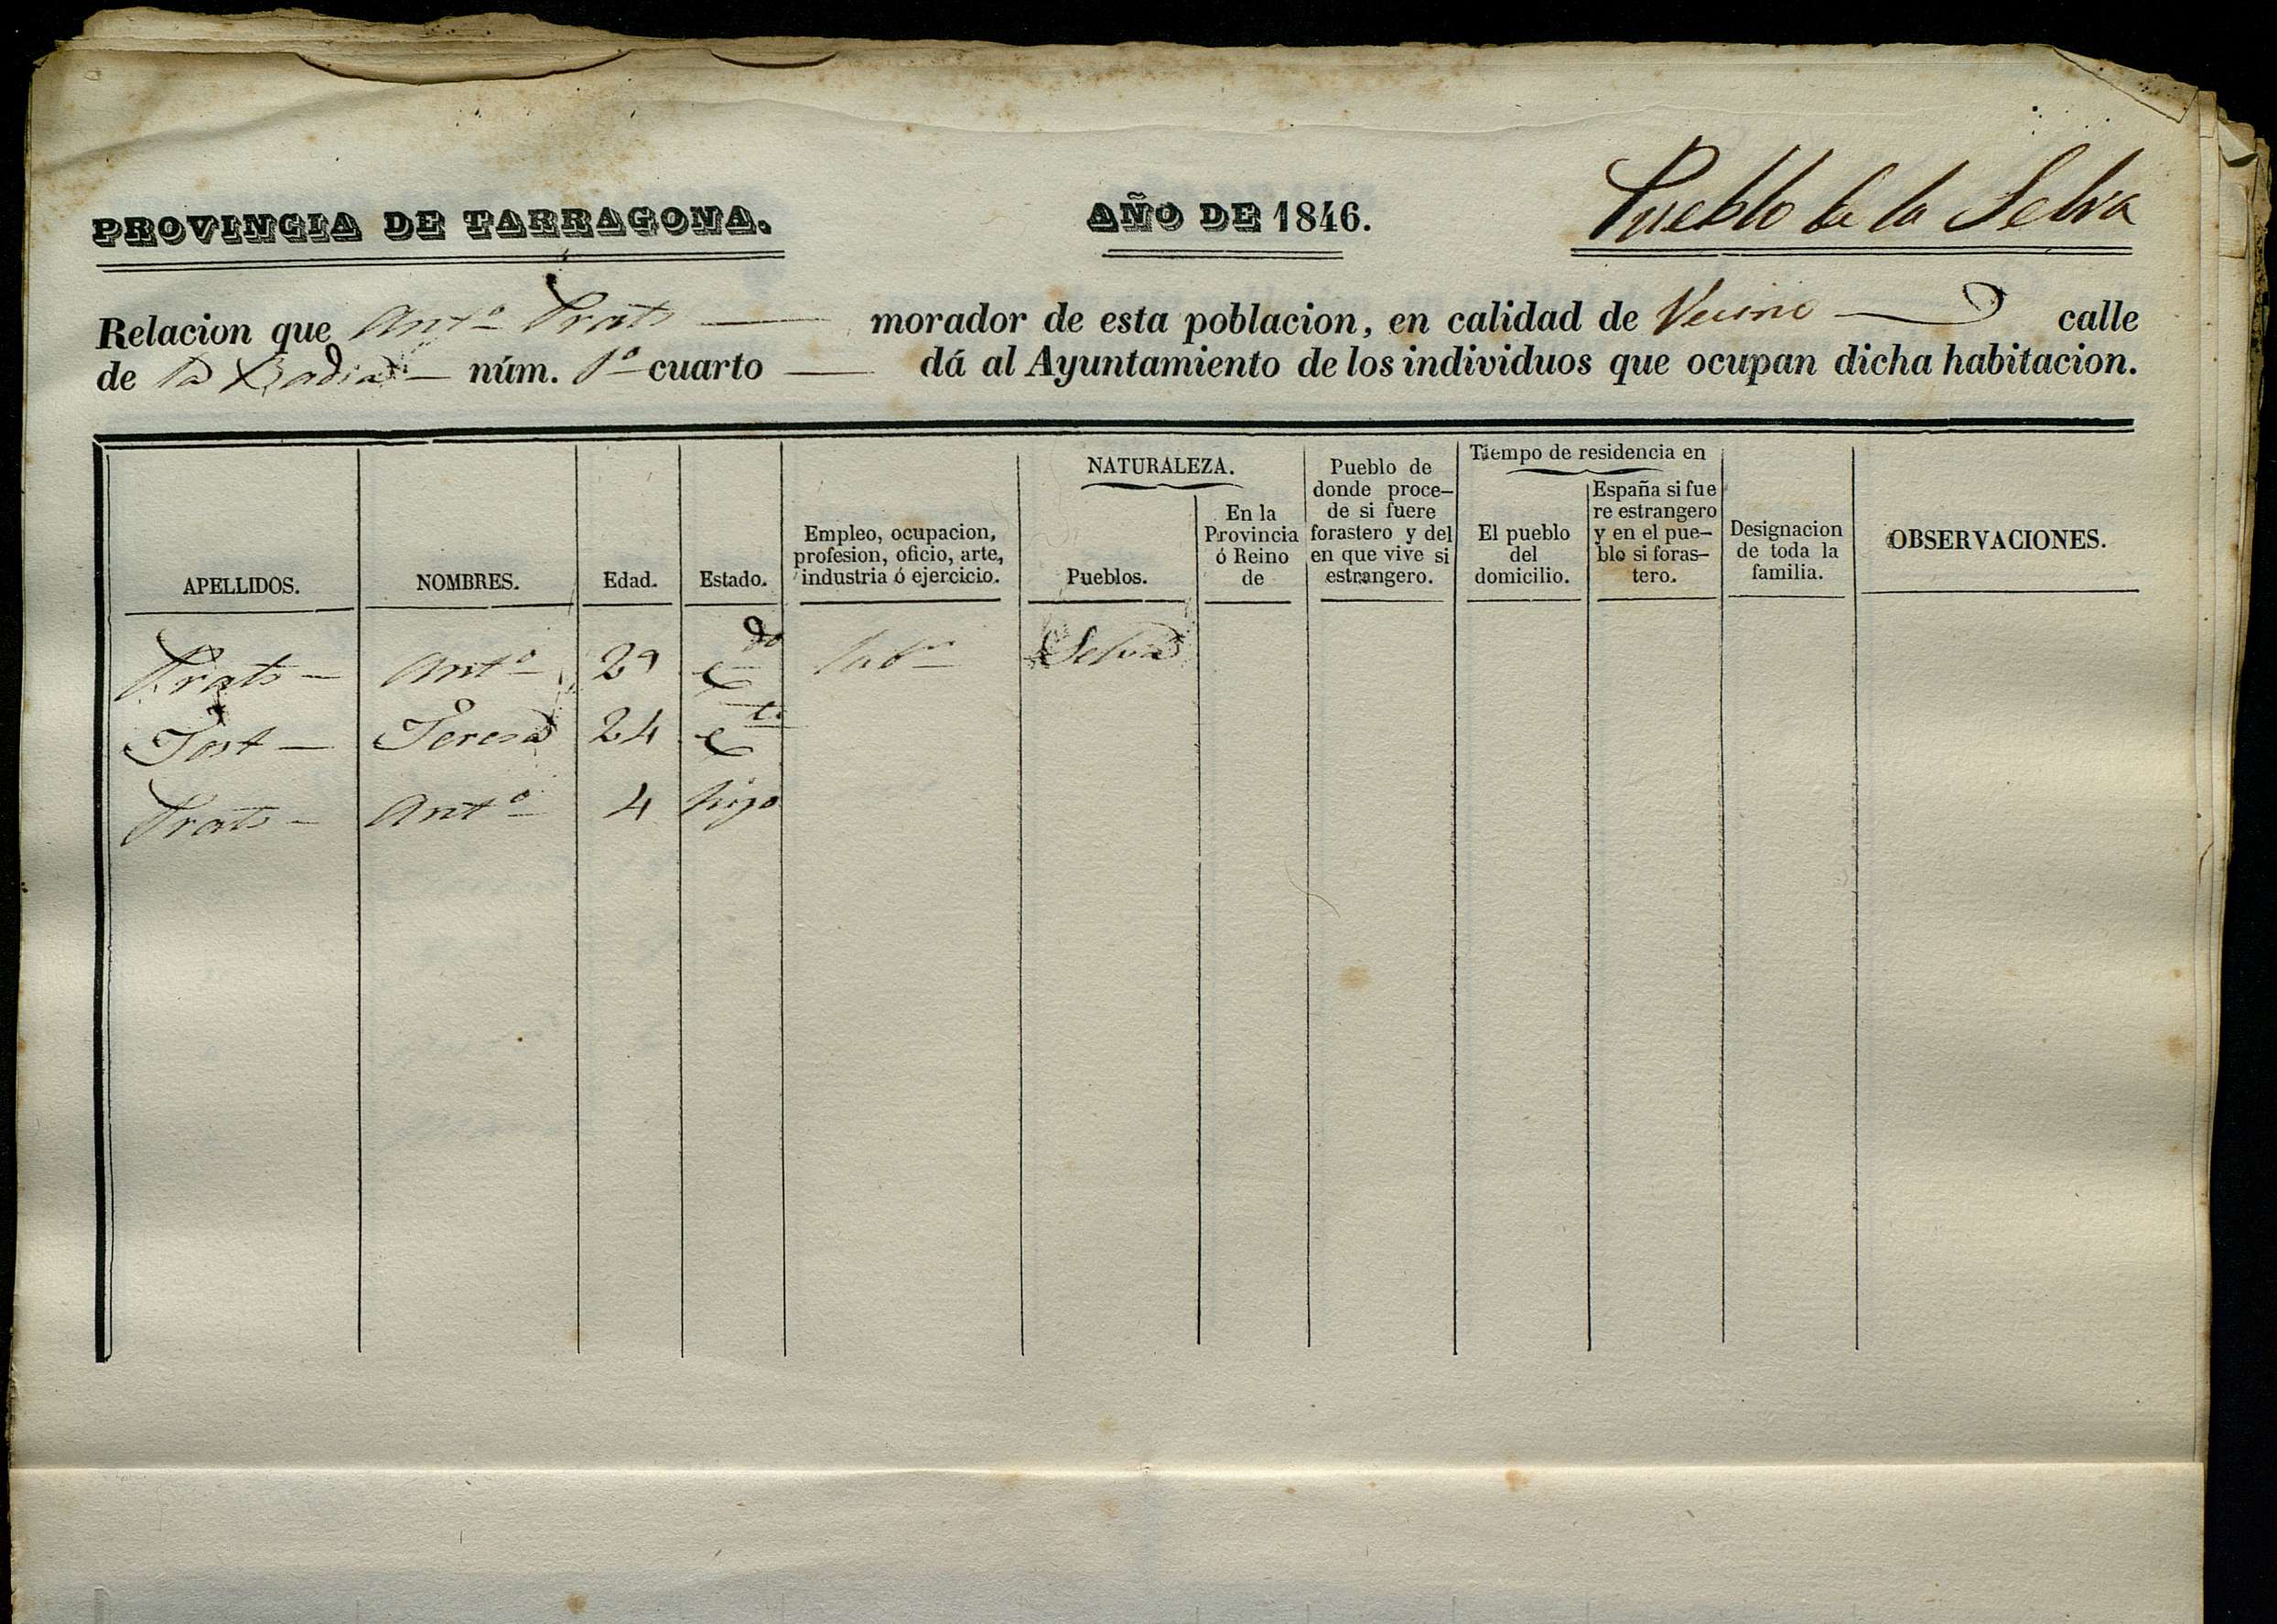 PROVINCIA DE TARRAGONA. AÑO DE 1846. Pueblo de la Selva
Relacion que Antº Prats — morador de esta poblacion, en calidad de Vecino — calle
de la — núm. 1º cuarto — dá al Ayuntamiento de los individuos que ocupan dicha habitacion.
APELLIDOS.
NOMBRES.
Edad.
Estado.
Empleo, ocupacion,
profesion, oficio, arte,
industria ó ejercicio.
NATURALEZA.
Pueblos.
En la
Provincia
ó Reino
de
Pueblo de
donde proce-
de si fuere
forastero y del
en que vive si
estrangero.
Tiempo de residencia en
El pueblo
del
domicilio.
España si fue
re estrangero
y en el pue-
blo si foras-
tero.
Designacion
de toda la
familia.
OBSERVACIONES.
Prats — Antº 29 Cdo Labr Selva
Jost — Teresa 24 Cda
Prats — Antº 4 hijo